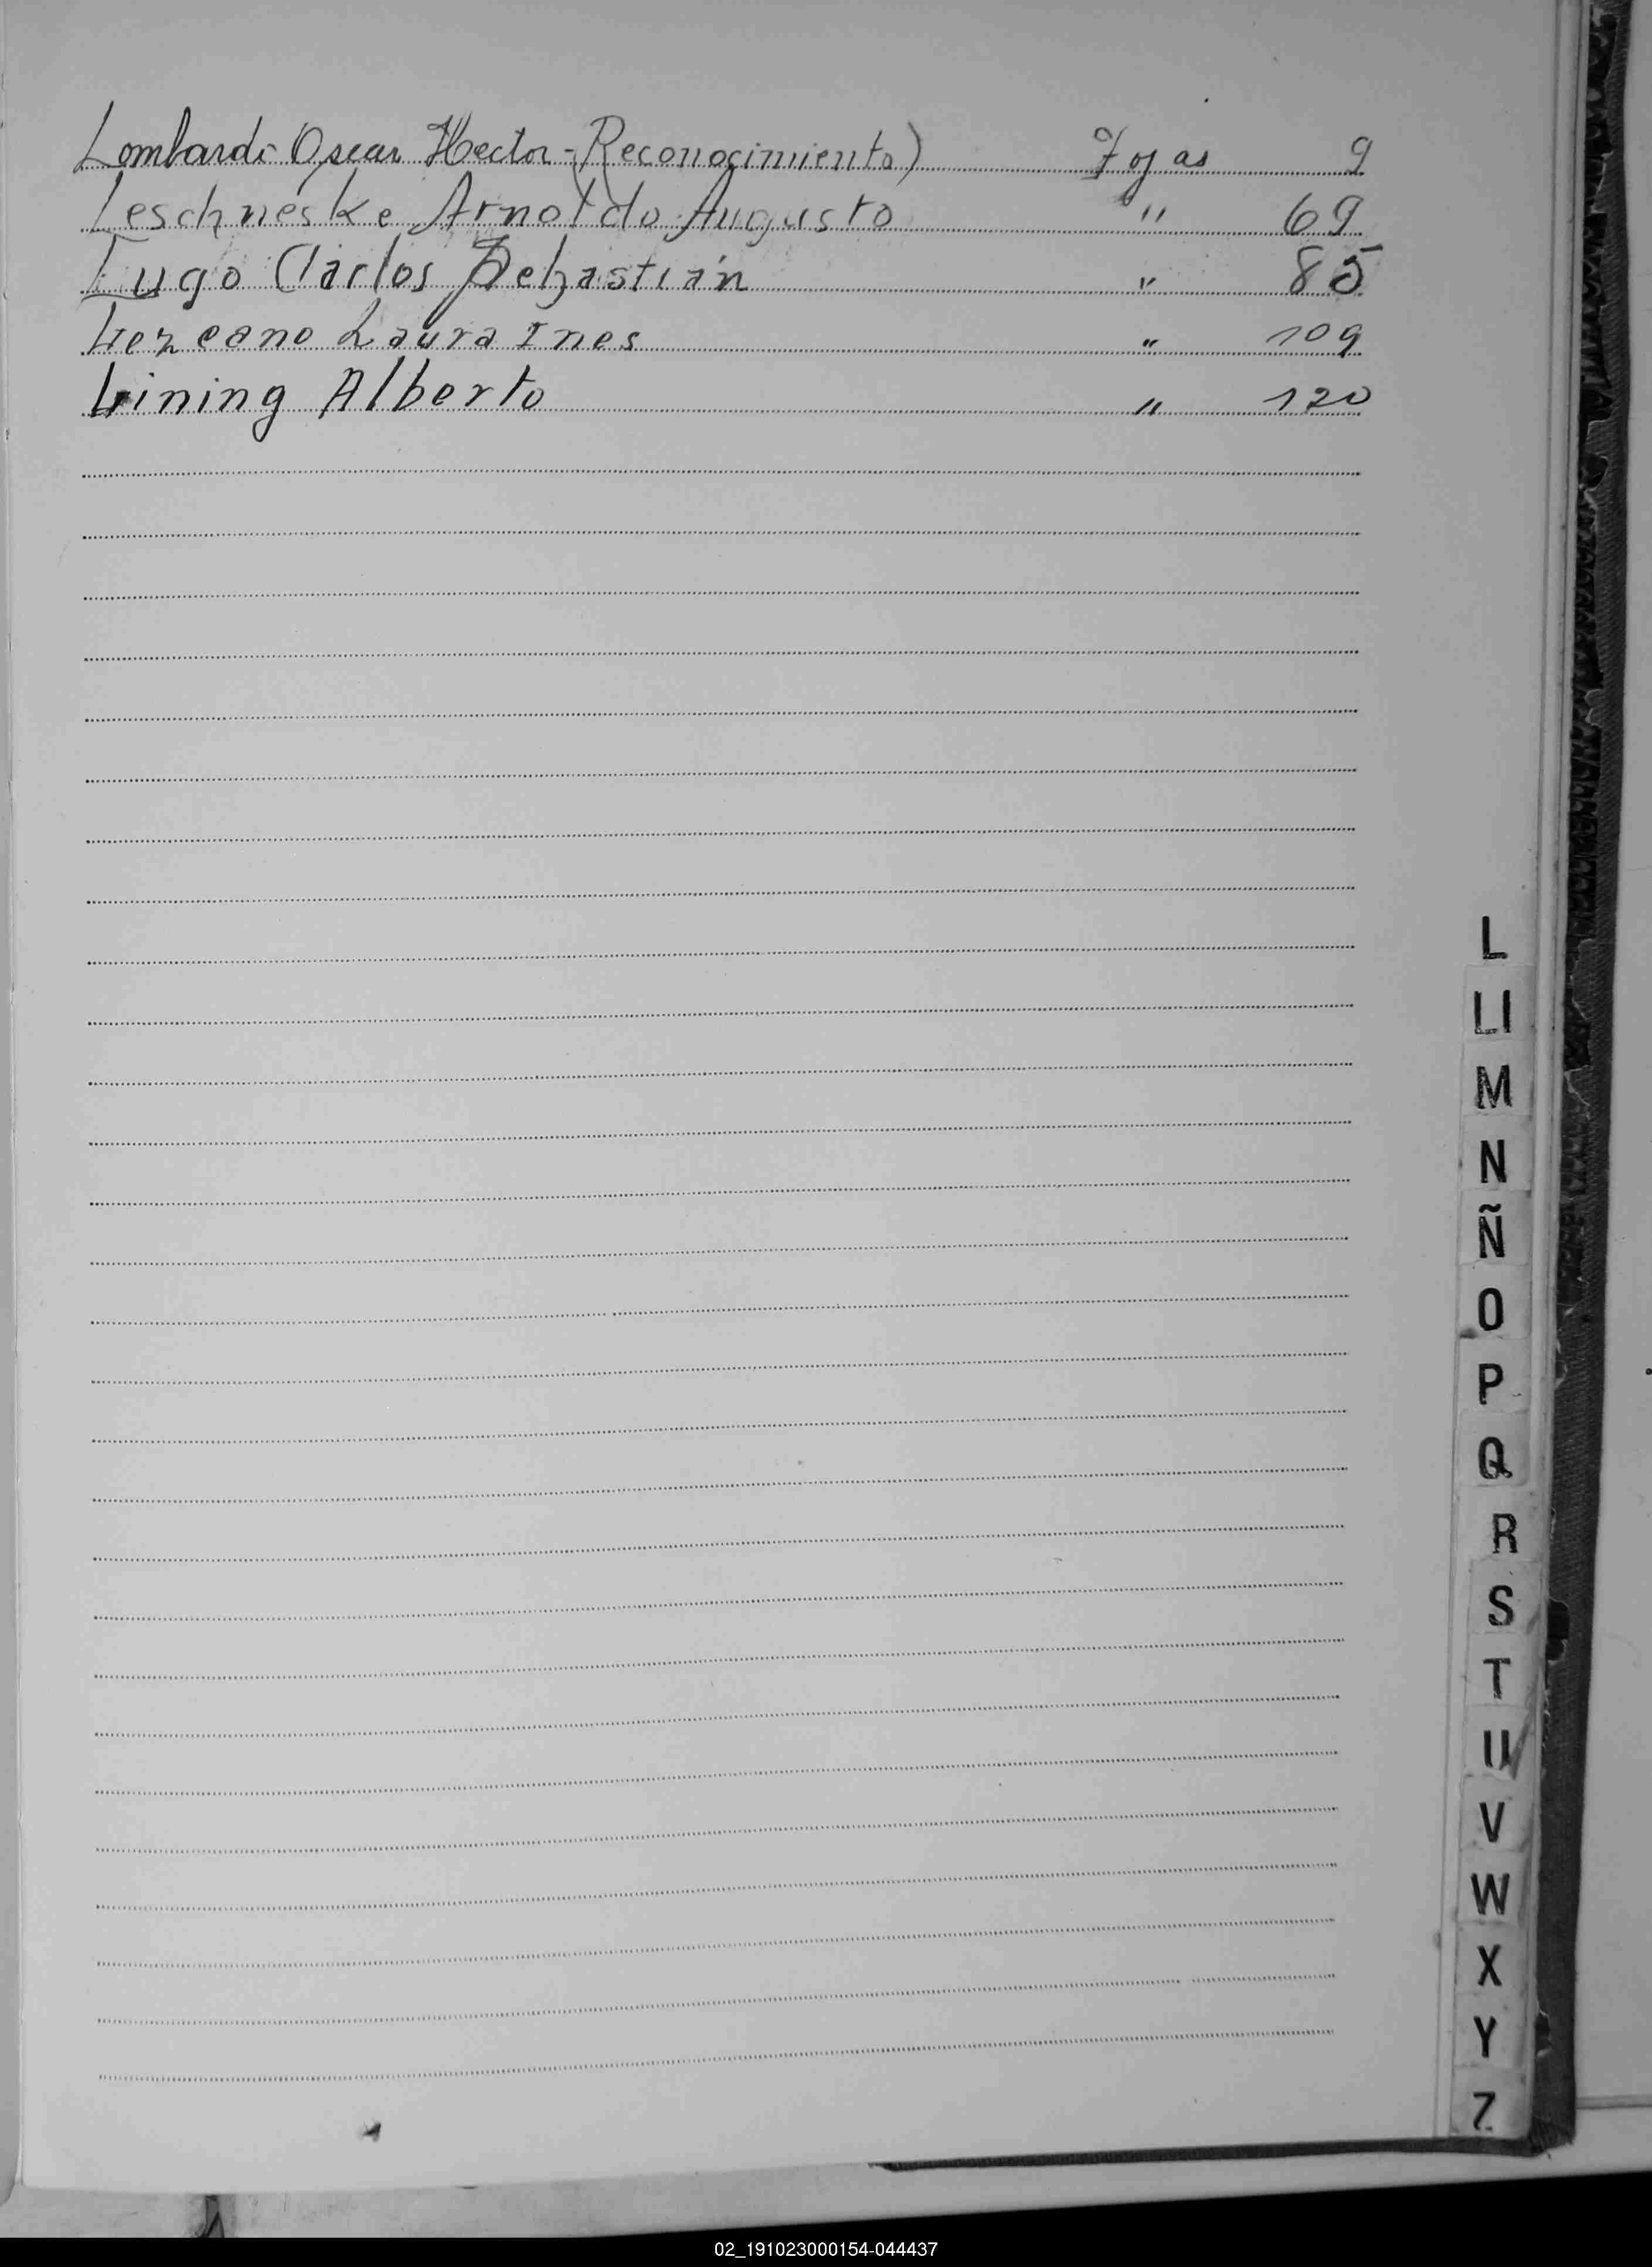 Lombardi Oscar Hector-(Reconocimiento) Fojas 9
Leschneske Arnoldo Augusto " 69
Lugo Carlos Sebastián " 85
Lezcano Laura Ines " 109
Lining Alberto " 120
L
Ll
M
N
Ñ
O
P
Q
R
S
T
U
V
W
X
Y
Z
02_191023000154-044437